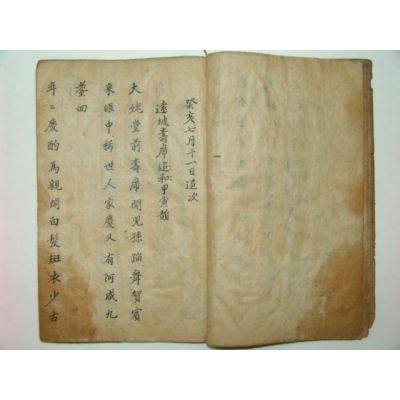 癸亥七月十一日追次
遠坡壽席追和甲寅韻
大姥堂前壽席開兒孫蹈舞賀賓
來眼中稀世人家慶又有阿咸九
耋回
年〻慶酌為親開白髮斑衣少古